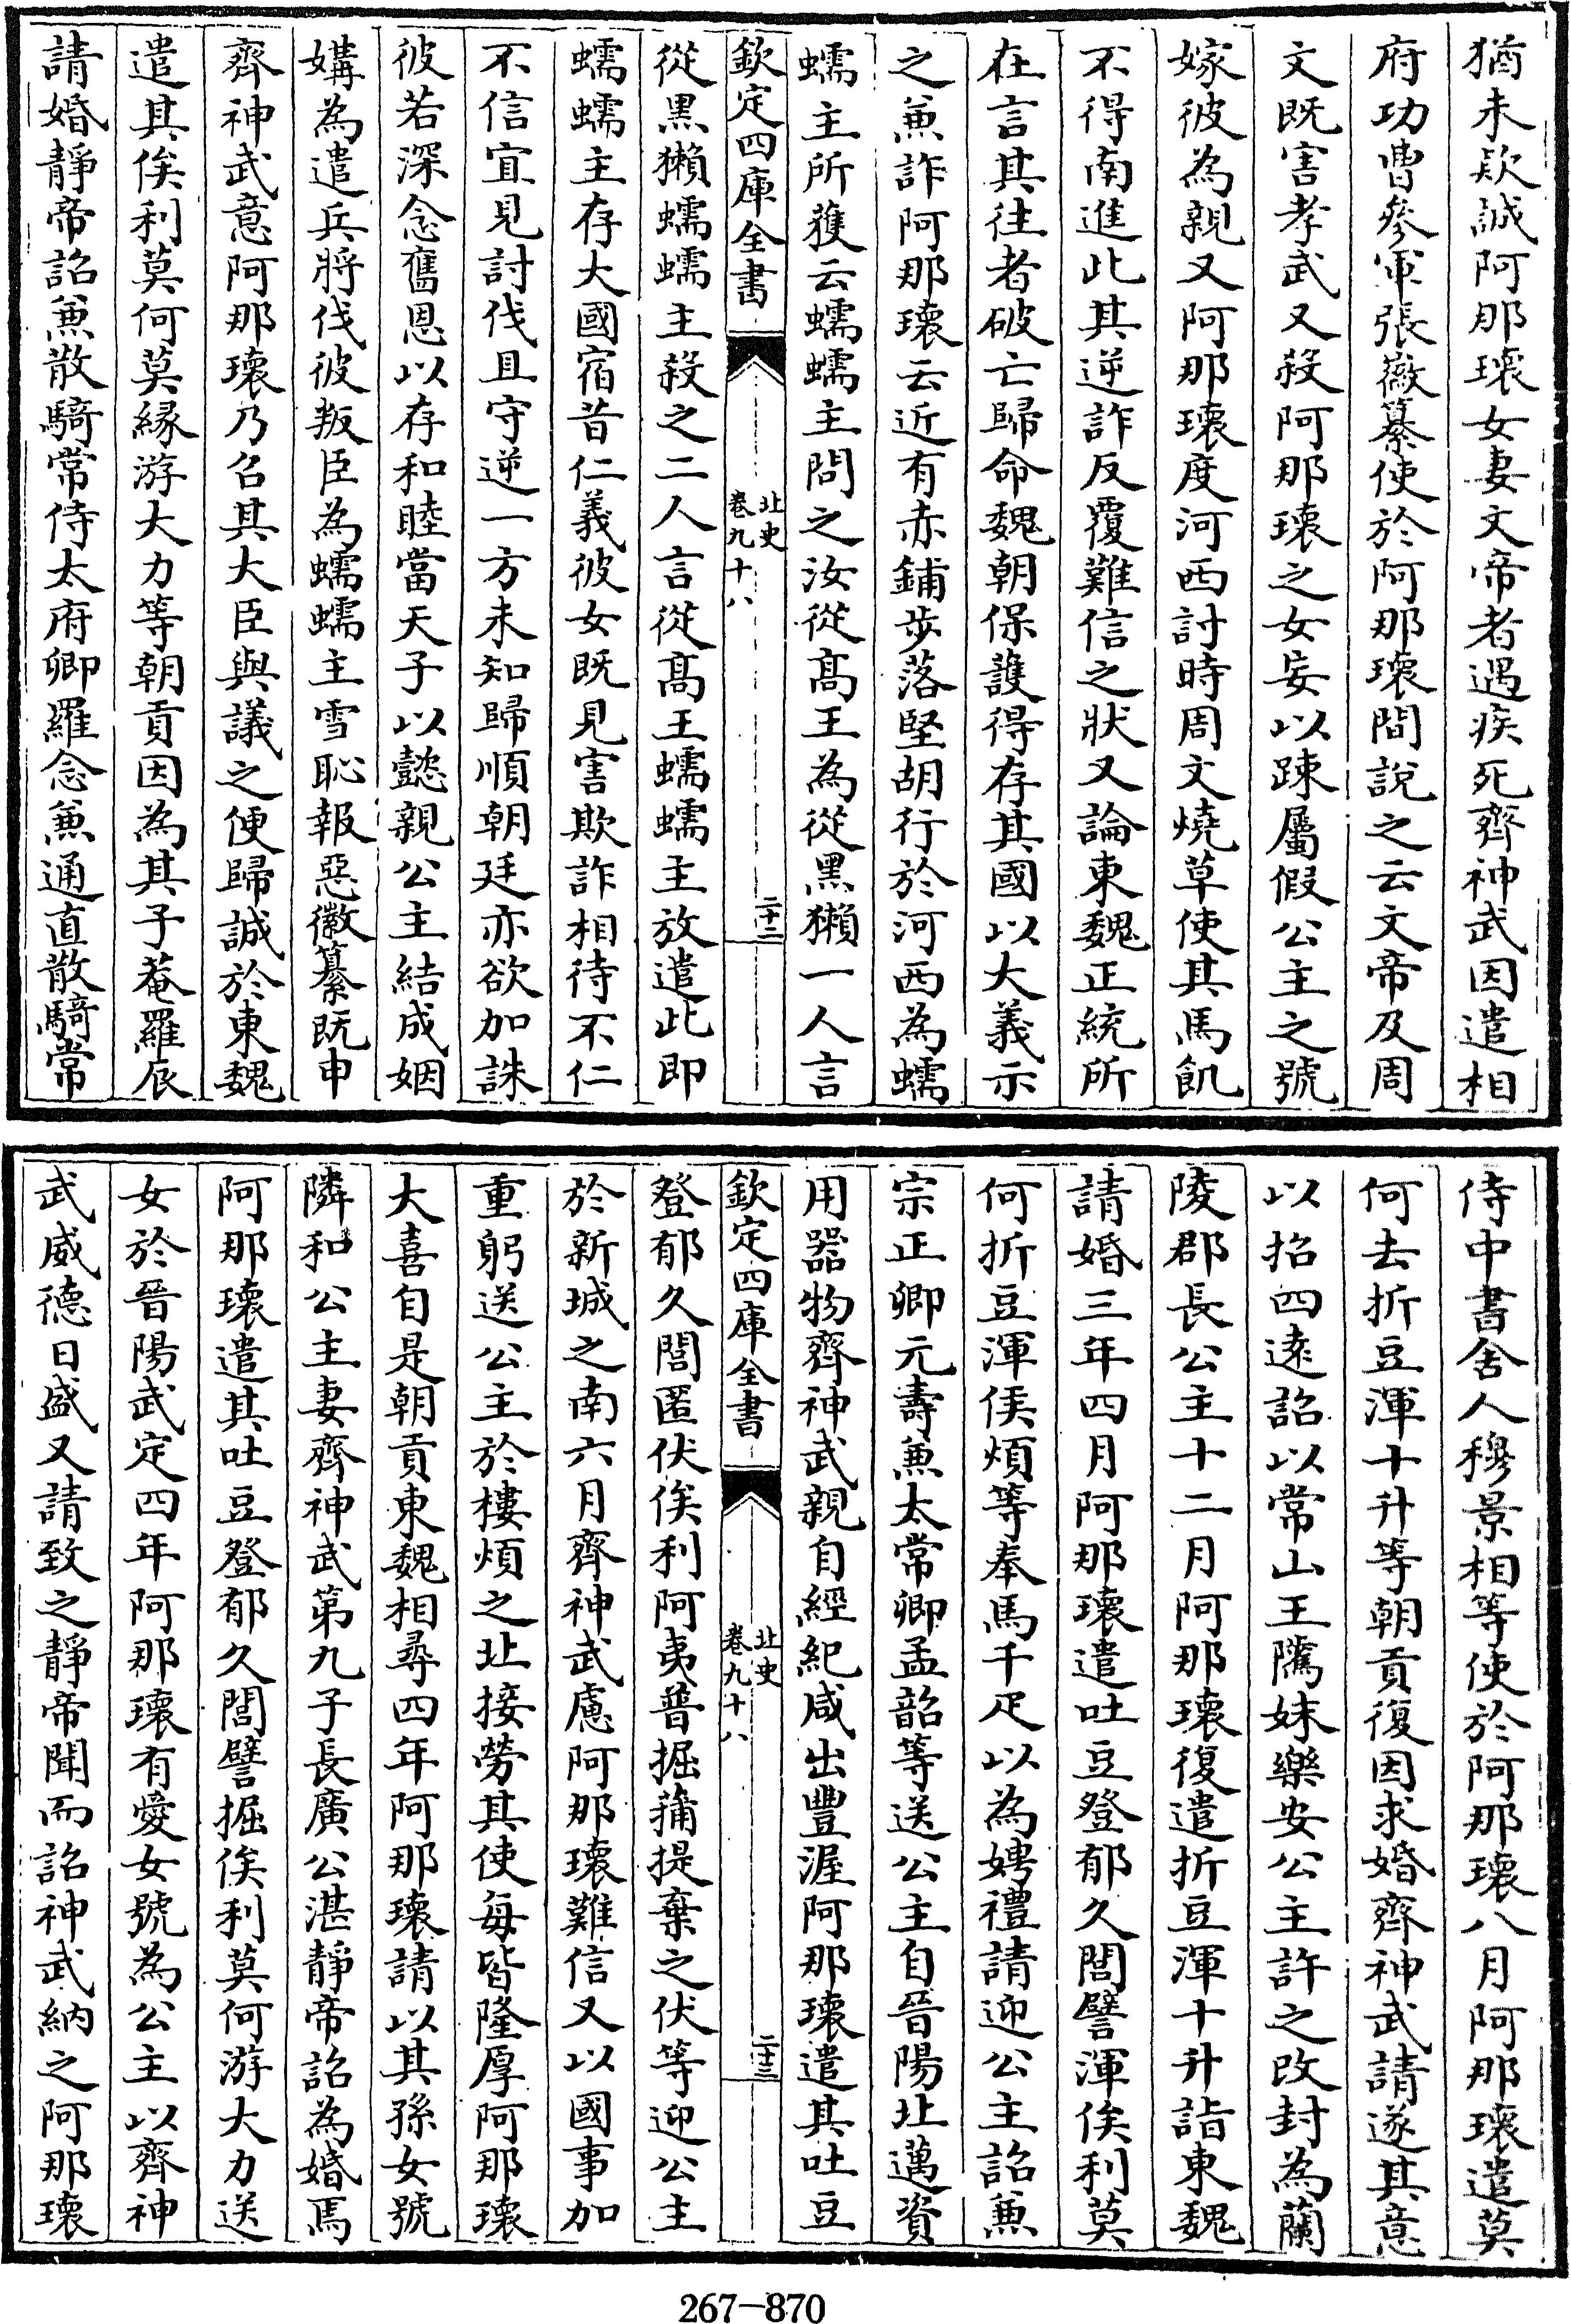 猶未欵誠阿那瓌女妻文帝者遇疾死齊神武因遣相
府功曹參軍張徽纂使於阿那瓌間說之云文帝及周
文既害孝武又殺阿那瓌之女妄以踈屬假公主之號
嫁彼為親又阿那瓌度河西討時周文燒草使其馬飢
不得南進此其逆詐反覆難信之狀又論東魏正統所
在言其往者破亡歸命魏朝保護得存其國以大義示
之兼詐阿那瓌云近有赤鋪步落堅胡行於河西為蠕
蠕主所獲云蠕蠕主問之汝從髙王為從黑獺一人言
欽定四庫全書
北史
卷九十八
二十二
從黑獺蠕蠕主殺之二人言從髙王蠕蠕主放遣此即
蠕蠕主存大國宿昔仁義彼女既見害欺詐相待不仁
不信宜見討伐且守逆一方未知歸順朝廷亦欲加誅
彼若深念舊恩以存和睦當天子以懿親公主結成姻
媾為遣兵將伐彼叛臣為蠕蠕主雪恥報惡徽纂既申
齊神武意阿那瓌乃召其大臣與議之便歸誠於東魏
遣其俟利莫何莫緣游大力等朝貢因為其子菴羅辰
請婚靜帝詔兼散騎常侍太府卿羅念兼通直散騎常
侍中書舍人穆景相等使於阿那瓌八月阿那瓌遣莫
何去折豆渾十升等朝貢復因求婚齊神武請遂其意
以招四遠詔以常山王隲妹樂安公主許之改封為蘭
陵郡長公主十二月阿那瓌復遣折豆渾十升詣東魏
請婚三年四月阿那瓌遣吐豆登郁久閭譬渾俟利莫
何折豆渾侯煩等奉馬千疋以為娉禮請迎公主詔兼
宗正卿元壽兼太常卿孟韶等送公主自晉陽北邁資
用器物齊神武親自經紀咸出豐渥阿那瓌遣其吐豆
欽定四庫全書
北史
卷九十八
二十三
登郁久閭匿伏俟利阿夷普掘蒱提棄之伏等迎公主
於新城之南六月齊神武慮阿那瓌難信又以國事加
重躬送公主於樓煩之北接勞其使每皆隆厚阿那瓌
大喜自是朝貢東魏相尋四年阿那瓌請以其孫女號
隣和公主妻齊神武第九子長廣公湛靜帝詔為婚焉
阿那瓌遣其吐豆登郁久閭譬掘俟利莫何游大力送
女於晉陽武定四年阿那瓌有愛女號為公主以齊神
武威德日盛又請致之靜帝聞而詔神武納之阿那瓌
267-870